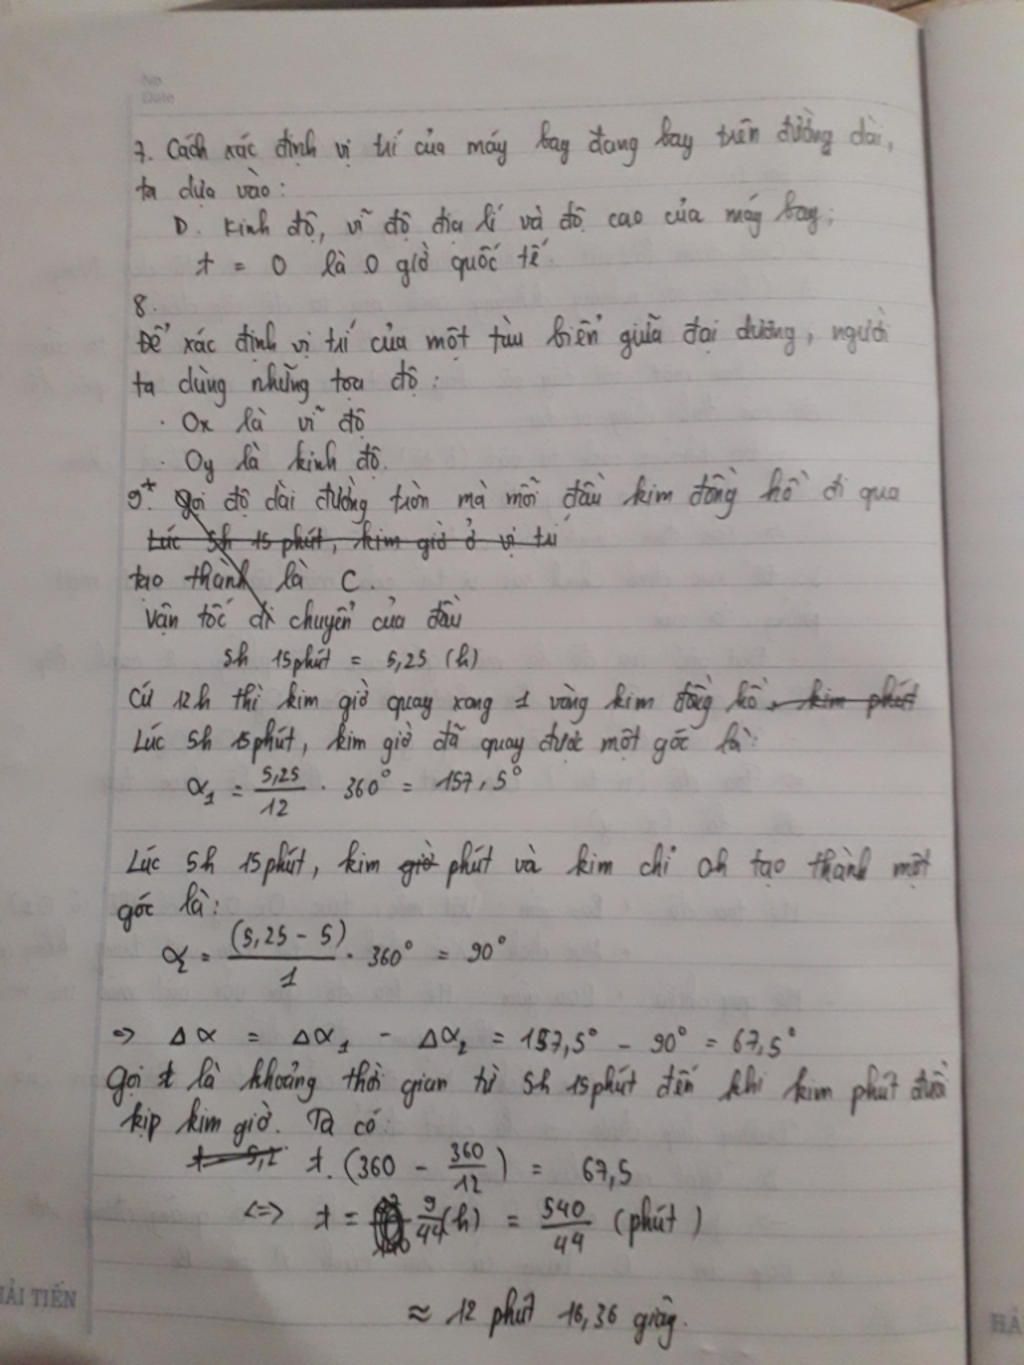 No
Date
7. Cách xác định vị trí của máy bay đang bay trên đường dài,
ta dựa vào:
D. Kinh độ, vĩ độ địa lí và độ cao của máy bay;
t = 0 là 0 giờ quốc tế
8.
Để xác định vị trí của một tàu biển giữa đại dương, người
ta dùng những toạ độ:
· Ox là vĩ độ
· Oy là kinh độ.
9* Gọi độ dài đường tròn mà mỗi đầu kim đồng hồ đi qua
Lúc 5h 15 phút, kim giờ ở vị trí
tạo thành là C.
Vận tốc di chuyển của đầu
5h 15phút = 5,25 (h)
Cứ 12h thì kim giờ quay xong 1 vòng kim đồng hồ, kim phút
Lúc 5h 15phút, kim giờ đã quay được một góc là:
α₁ = 5,25/12 · 360° = 157,5°
Lúc 5h 15phút, kim giờ phút và kim chỉ 0h tạo thành một
góc là:
α₂ = (5,25 - 5)/1 · 360° = 90°
=> Δα = Δα₁ - Δα₂ = 157,5° - 90° = 67,5°
Gọi t là khoảng thời gian từ 5h 15phút đến khi kim phút đuổi
kịp kim giờ. Ta có:
t. (360 - 360/12) = 67,5
<=> t = 9/44 (h) = 540/44 (phút)
≈ 12 phút 16,36 giây.
HẢI TIẾN
HẢ